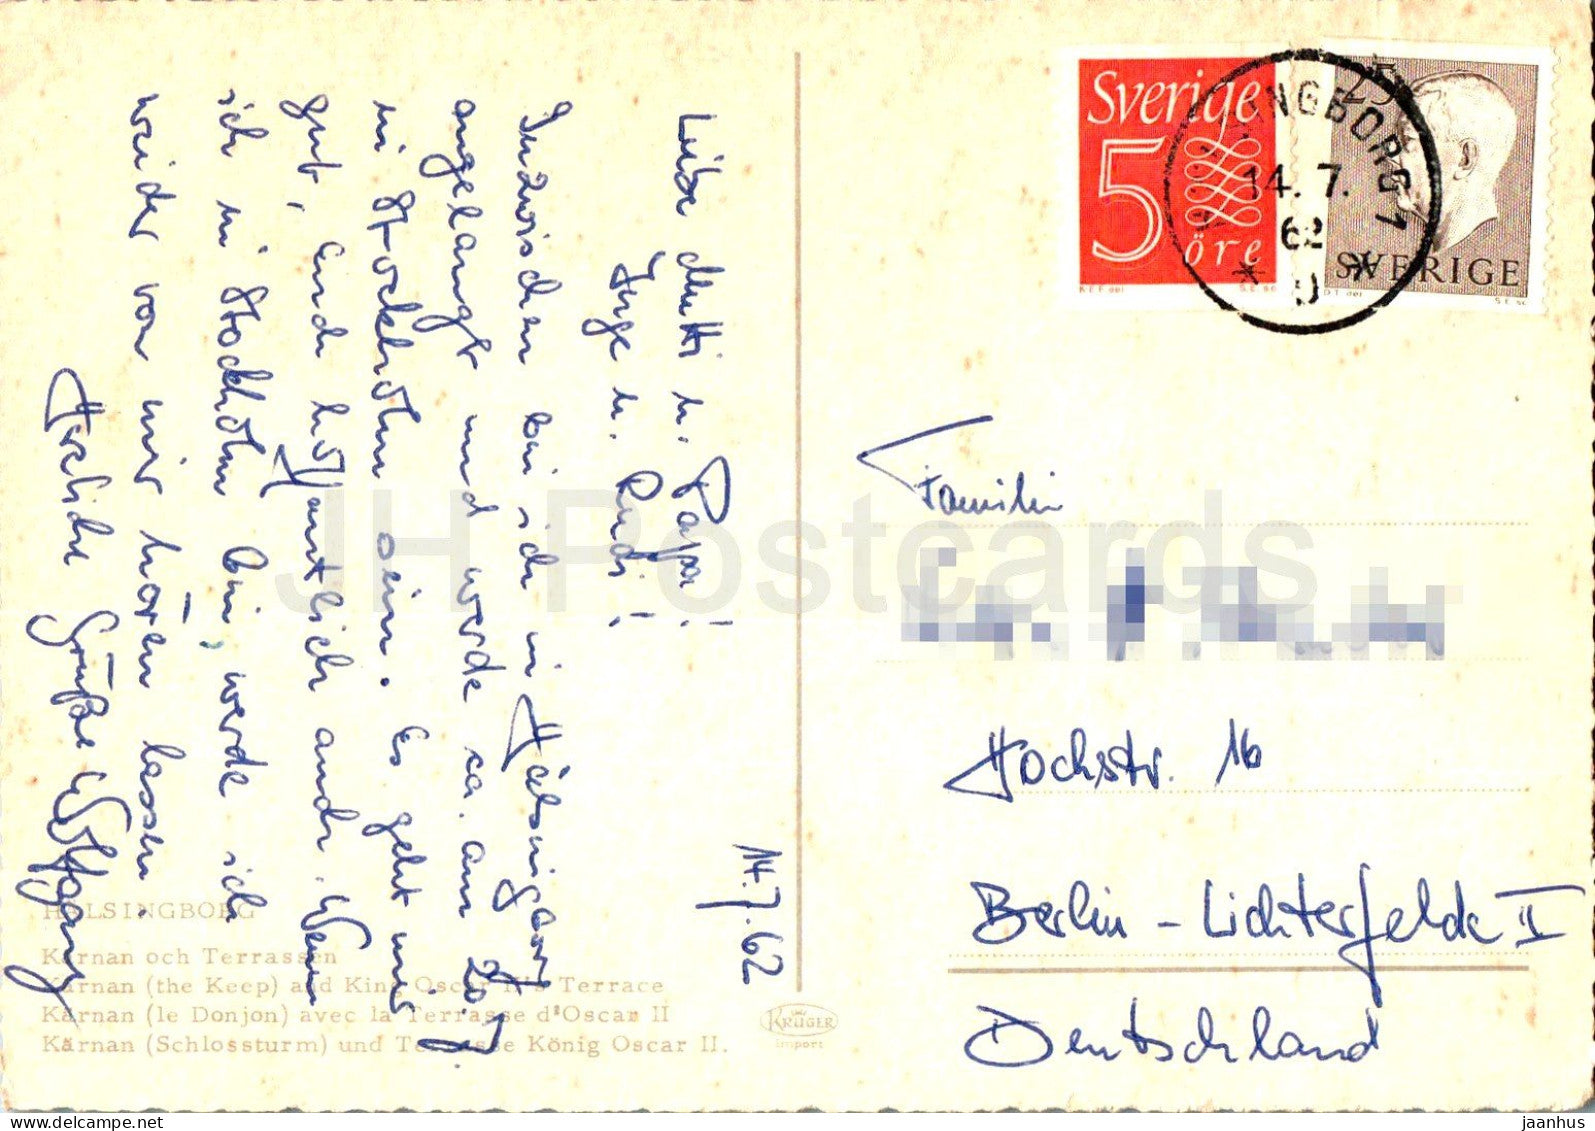 14.7.62
Liebe Mutti u. Papa!
Inge u. Rudi!
Inzwischen bin ich in Hälsingborg
angelangt und werde ca. am 20.7.
in Stockholm sein. Es geht mir
gut, Euch hoffentlich auch. Wenn
ich in Stockholm bin, werde ich
wieder von mir hören lassen.
Herzliche Grüße Wolfgang
HÄLSINGBORG
Kärnan och Terrassen
Kärnan (the Keep) and King Oscar II's Terrace
Kärnan (le Donjon) avec la Terrasse d'Oscar II
Kärnan (Schlossturm) und Terrasse König Oscar II.
KRÜGER
import
Sverige
5
öre
KEF del
S.E. sc
25
SVERIGE
S.E. sc
HÄLSINGBORG 1
14. 7.
62
Familie
Hochstr. 16
Berlin - Lichterfelde II
Deutschland
JH Postcards
jaanhus